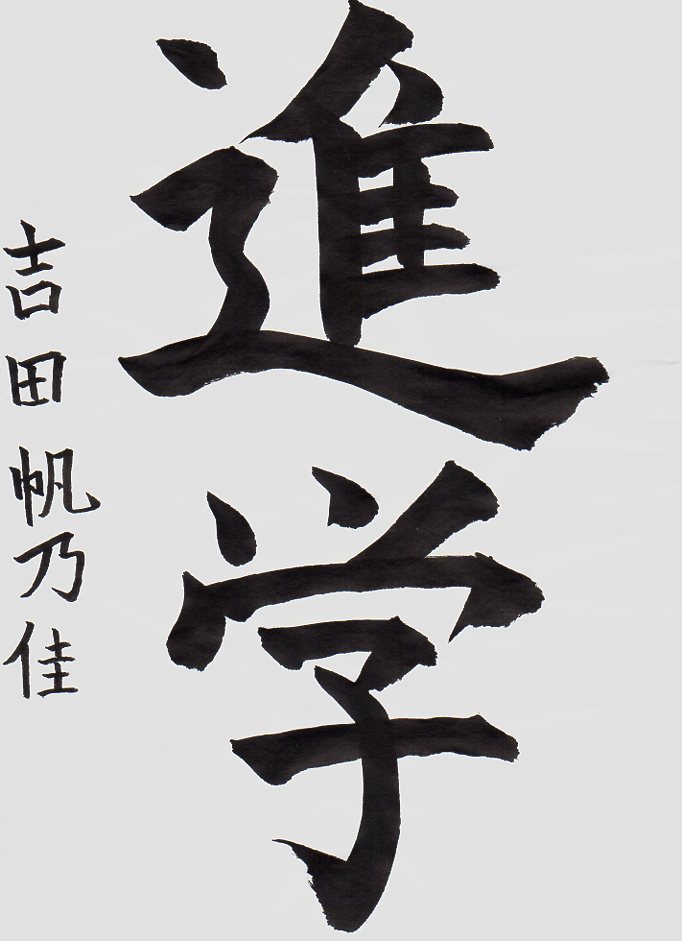 進学
吉田帆乃佳